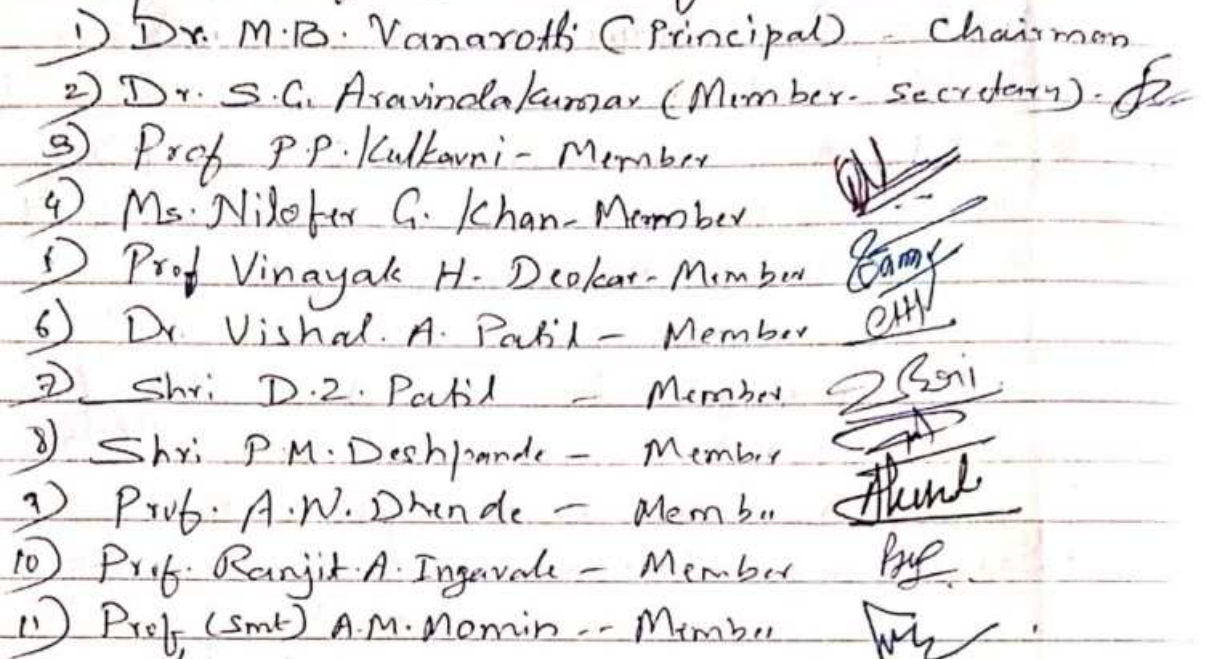 1) Dr. M.B. Vanarotti (Principal) - Chairman
2) Dr. S.G. Aravindakumar (Member- secretary).
3) Prof P.P. Kulkarni - Member
4) Ms. Nilofer G. Khan - Member
5) Prof Vinayak H. Deokar - Member
6) Dr. Vishal. A. Patil - Member
7) Shri D.Z. Patil - Member
8) Shri P.M. Deshpande - Member
9) Prof. A.W. Dhende - Member
10) Prof. Ranjit. A. Ingavale - Member
11) Prof, (smt) A.M. Momin -- Member